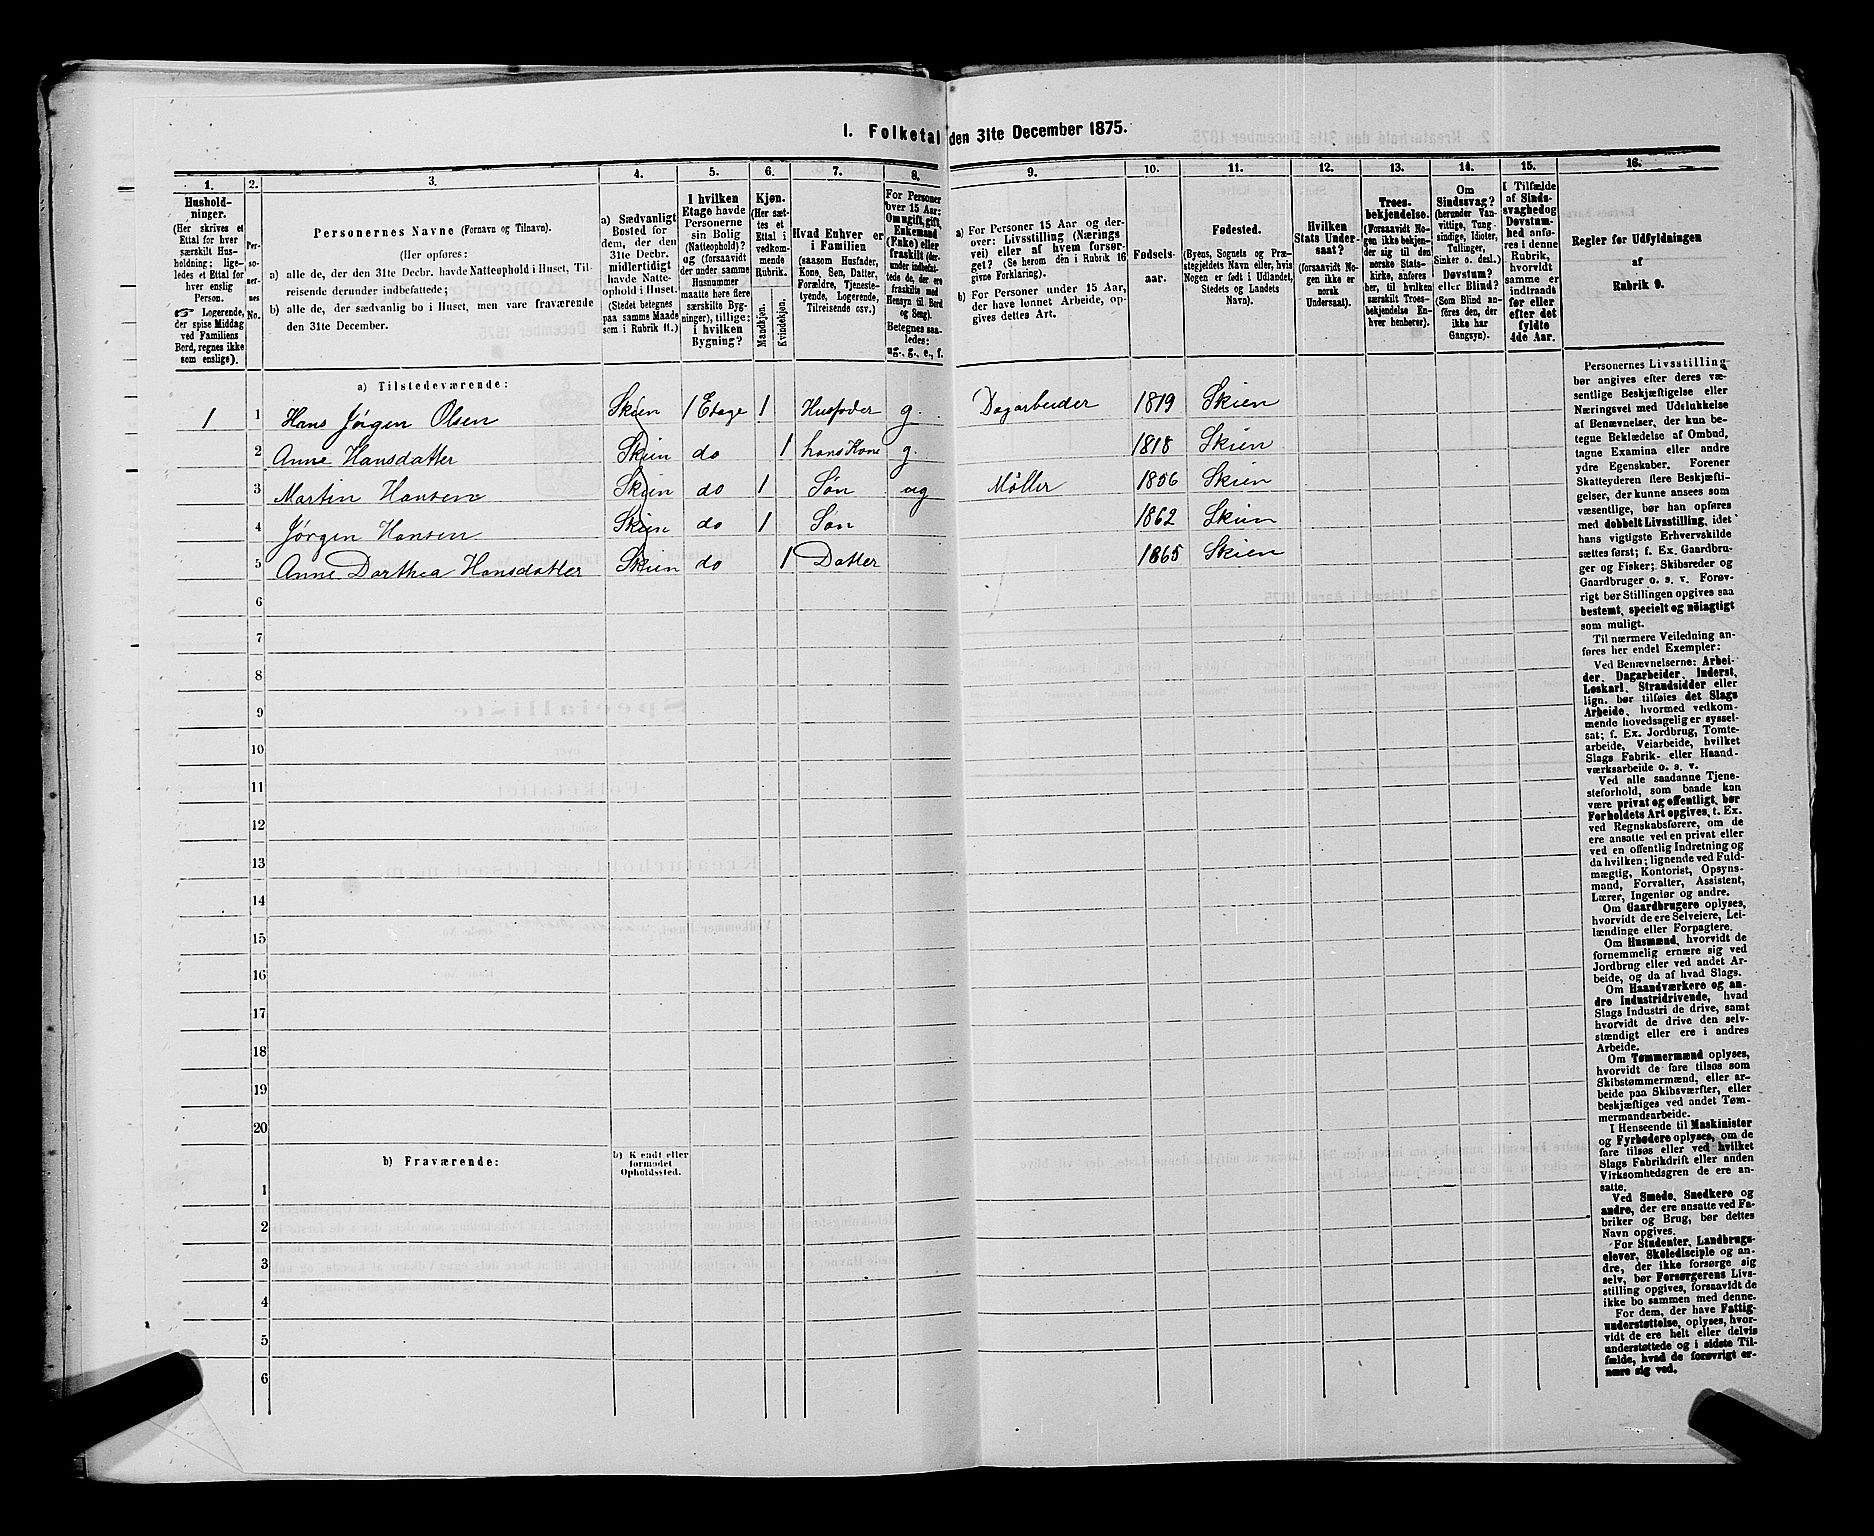 I. Folketal den 31te December 1875.
1. 2. 3. 4. 5. 6. 7. 8. 9. 10. 11. 12. 13. 14. 15. 16.
Hushold-
ninger.
(Her skrives et
Ettal for hver
særskilt Hus-
holdning; lige-
ledes et Ettal for
hver enslig
Person.
☞ Logerende,
der spise Middag
ved Familiens
Bord, regnes ikke
som enslige).
Per-
so-
ner-
nes
No.
Personernes Navne (Fornavn og Tilnavn).
(Her opføres:
a) alle de, der den 31te Decbr. havde Natteophold i Huset, Til-
reisende derunder indbefattede;
b) alle de, der sædvanlig bo i Huset, men vare fraværende
den 31te December.
a) Sædvanligt
Bosted for
dem, der den
31te Decbr.
midlertidigt
havde Natte-
ophold i Huset.
(Stedet betegnes
paa samme Maade
som i Rubrik 11.)
I hvilken
Etage havde
Personerne
sin Bolig
(Natteophold)?
og (forsaavidt
der under samme
Husnummer
maatte høre flere
særskilte Byg-
ninger), tillige:
i hvilken
Bygning?
Kjøn.
(Her sæt-
tes et
Ettal i
vedkom-
mende
Rubrik.
Mandkjøn.
Kvindekjøn.
Hvad Enhver er
i Familien
(saasom Husfader,
Kone, Søn, Datter,
Forældre, Tjeneste-
tyende, Logerende,
Tilreisende osv.)
For Personer
over 15 Aar:
Om ugift, gift,
Enkemand
(Enke) eller
fraskilt (der-
under indbefat-
tede de, der ere
fraskilte med
Hensyn til Bord
og Seng).
Betegnes saa-
ledes:
ug., g., e., f.
a) For Personer 15 Aar og der-
over: Livsstilling (Nærings
vei) eller af hvem forsør-
get? (Se herom den i Rubrik 16
givne Forklaring).
b) For Personer under 15 Aar,
der have lønnet Arbeide, op-
gives dettes Art.
Fødsels-
aar.
Fødested.
(Byens, Sognets og Præ-
stegjeldets Navn eller, hvis
Nogen er født i Udlandet,
Stedets og Landets
Navn).
Hvilken
Stats Under-
saat?
(forsaavidt No-
gen ikke er
norsk
Undersaat).
Troes-
bekjendelse.
(Forsaavidt No-
gen ikke bekjen-
der sig til den
norske Stats-
kirke, anføres
her, til hvilken
særskilt Troes-
bekjendelse En-
hver henhører).
Om
Sindssvag?
(herunder Van-
vittige, Tung-
sindige, Idioter,
Tullinger,
Sinker o. desl.)
Døvstum?
eller Blind?
(Som Blind an-
føres den, der
ikke har
Gangsyn).
I Tilfælde
af Sinds-
svaghed og
Døvstum-
hed anfø-
res i denne
Rubrik,
hvorvidt
samme er
indtraadt
før eller
efter det
fyldte
4de Aar.
Regler for Udfyldningen
af
Rubrik 9.
a) Tilstedeværende:
1 1 Hans Jørgen Olsen Skien 1 Etage 1 Husfader g. Dagarbeider 1819 Skien
2 Anne Hansdatter Skien do 1 hans Kone g. 1818 Skien
3 Martin Hansen Skien do 1 Søn ug Møller 1856 Skien
4 Jørgen Hansen Skien do 1 Søn 1862 Skien
5 Anne Dorthea Hansdatter Skien do 1 Datter 1865 Skien
6
7
8
9
10
11
12
13
14
15
16
17
18
19
20
b) Fraværende:
b) Kjendt eller
formodet
Opholdssted.
1
2
3
4
5
6
Personernes Livsstilling
bør angives efter deres væ-
sentlige Beskjæftigelse eller
Næringsvei med Udelukkelse
af Benævnelser, der kun be-
tegne Beklædelse af Ombud,
tagne Examina eller andre
ydre Egenskaber. Forener
Skatteyderen flere Beskjæfti-
gelser, der kunne ansees som
væsentlige, bør han opføres
med dobbelt Livsstilling, idet
hans vigtigste Erhvervskilde
sættes først; f. Ex. Gaardbru-
ger og Fisker; Skibsreder og
Gaardbruger o. s. v. Forøv-
rigt bør Stillingen opgives saa
bestemt, specielt og nøiagtigt
som muligt.
Til nærmere Veiledning an-
føres her endel Exempler:
Ved Benævnelserne: Arbei-
der, Dagarbeider, Inderst,
Løskarl, Strandsidder eller
lign. bør tilføies det Slags
Arbeide, hvormed vedkom-
mende hovedsagelig er syssel-
sat; f. Ex. Jordbrug, Tomte-
arbeide, Veiarbeide, hvilket
Slags Fabrik- eller Haand-
værksarbeide o. s. v.
Ved alle saadanne Tjene-
steforhold, som baade kan
være privat og offentligt, bør
Forholdets Art opgives, t. Ex.
ved Regnskabsførere, om de
ere ansatte ved en privat eller
ved en offentlig Indretning og
da hvilken; lignende ved Fuld-
mægtig, Kontorist, Opsyns-
mand, Forvalter, Assistent,
Lærer, Ingeniør og andre.
Om Gaardbrugere oplyses,
hvorvidt de ere Selveiere, Lei-
lændinge eller Forpagtere.
Om Husmænd, hvorvidt de
fornemmelig ernære sig ved
Jordbrug eller ved andet Ar-
beide, og da af hvad Slags.
Om Haandværkere og an-
dre Industridrivende, hvad
Slags Industri de drive, samt
hvorvidt de drive den selv-
stændigt eller ere i andres
Arbeide.
Om Tømmermænd oplyses,
hvorvidt de fare tilsøs som
Skibstømmermænd, eller ar-
beide paa Skibsværfter, eller
beskjæftiges ved andet Tøm-
mermandsarbeide.
I Henseende til Maskinister
og Fyrbødere oplyses, om de
fare tilsøs eller ved hvilket
Slags Fabrikdrift eller anden
Virksomhedsgren de ere an-
satte.
Ved Smede, Snedkere og
andre, der ere ansatte ved Fa-
briker og Brug, bør dettes
Navn opgives.
For Studenter, Landbrugs-
elever, Skoledisciple og an-
dre, der ikke forsørge sig
selv, bør Forsørgerens Livs-
stilling opgives, forsaavidt de
ikke bo sammen med denne.
For dem, der have Fattig-
understøttelse, oplyses, hvor-
vidt de ere helt eller delvis
understøttede og i sidste Til-
fælde, hvad de forøvrigt er-
nære sig ved.